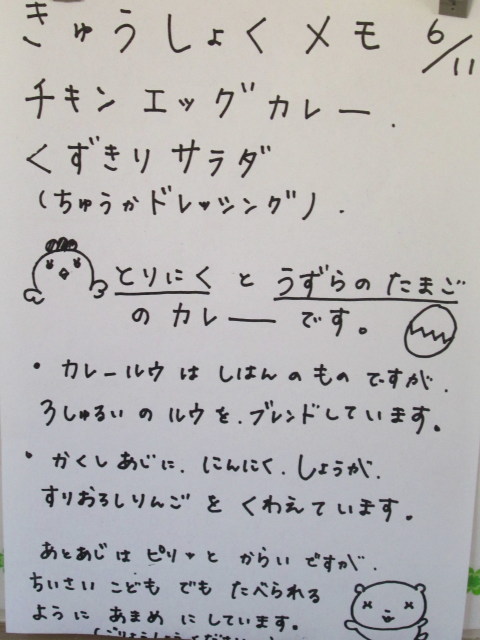 きゅうしょくメモ 6/11
チキンエッグカレー.
くずきりサラダ
(ちゅうかドレッシング).
とりにくとうずらのたまご
のカレーです。
・カレールウはしはんのものですが.
3しゅるいのルウを.ブレンドしています。
・かくしあじに.にんにく.しょうが.
すりおろしりんごをくわえています。
あとあじはピリッとからいですが.
ちいさいこどもでもたべられる
ようにあまめにしています。